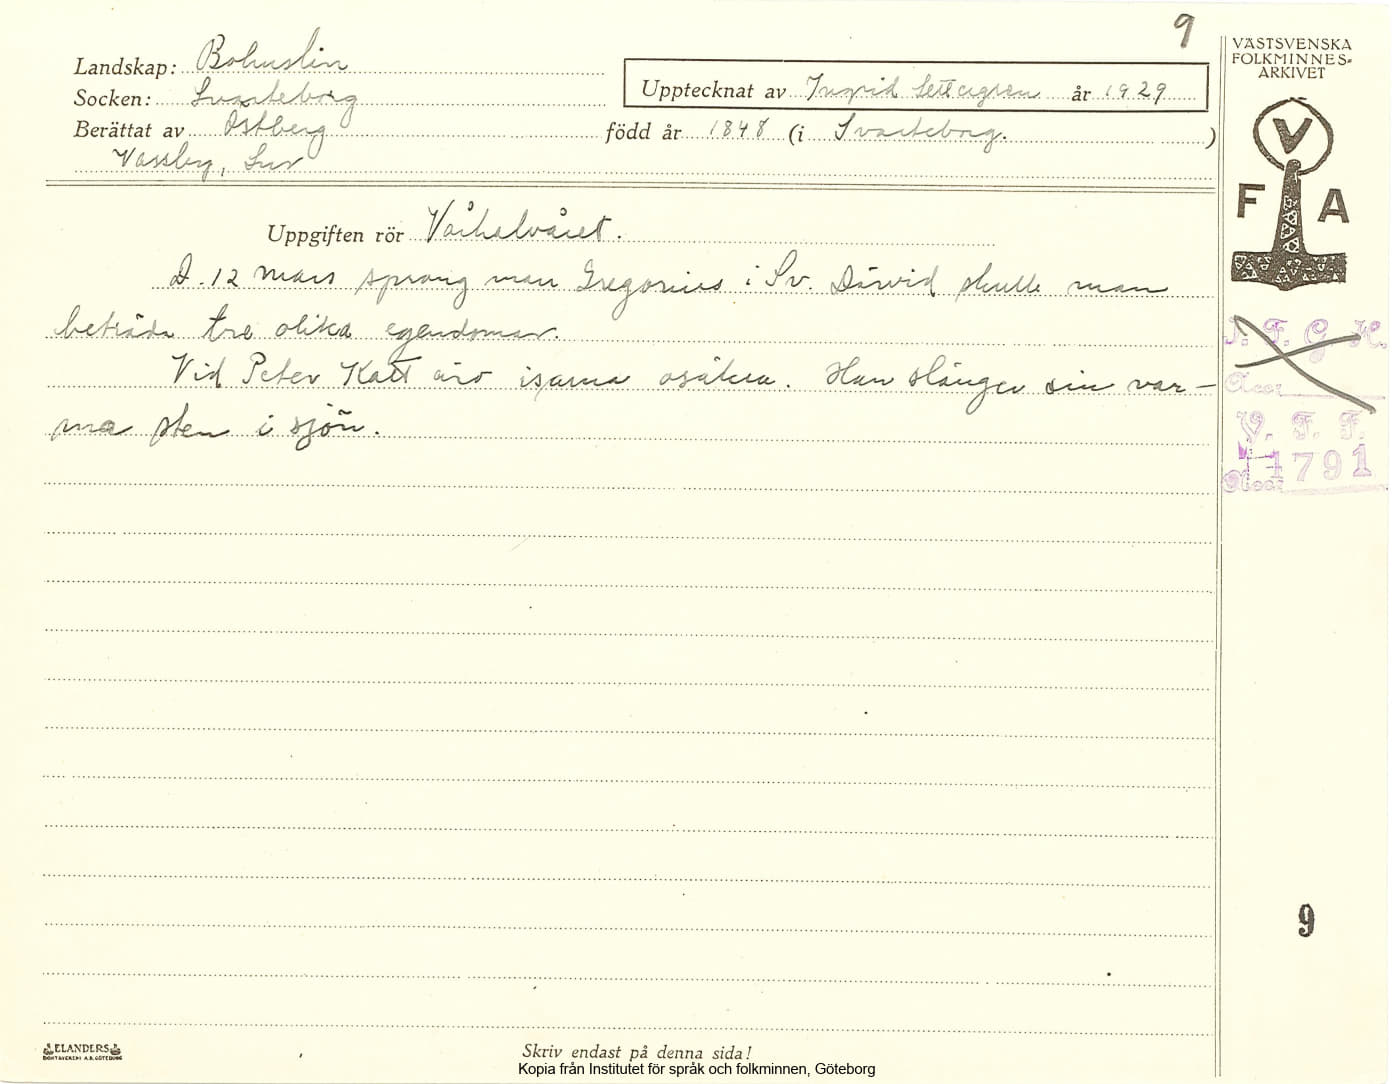 9
VÄSTSVENSKA
FOLKMINNES-
ARKIVET
Landskap: Bohuslän
Socken: Svarteborg
Upptecknat av Ingrid år 1929
Berättat av Östberg född år 1848 (i Svarteborg. )
V
F A
Uppgiften rör Vårhalvåret.
D. 12 mars sprang man Gregorius i Sv. Därvid skulle man
beträda tre olika egendomar.
Vid Peter Katt äro isarna osäkra. Han slänger sin var-
ma sten i sjön.
I. F. G. H.
Acc:
V. F. F.
Acc: 1791
9
ELANDERS
BOKTRYCKERI A.B. GÖTEBORG
Skriv endast på denna sida!
Kopia från Institutet för språk och folkminnen, Göteborg